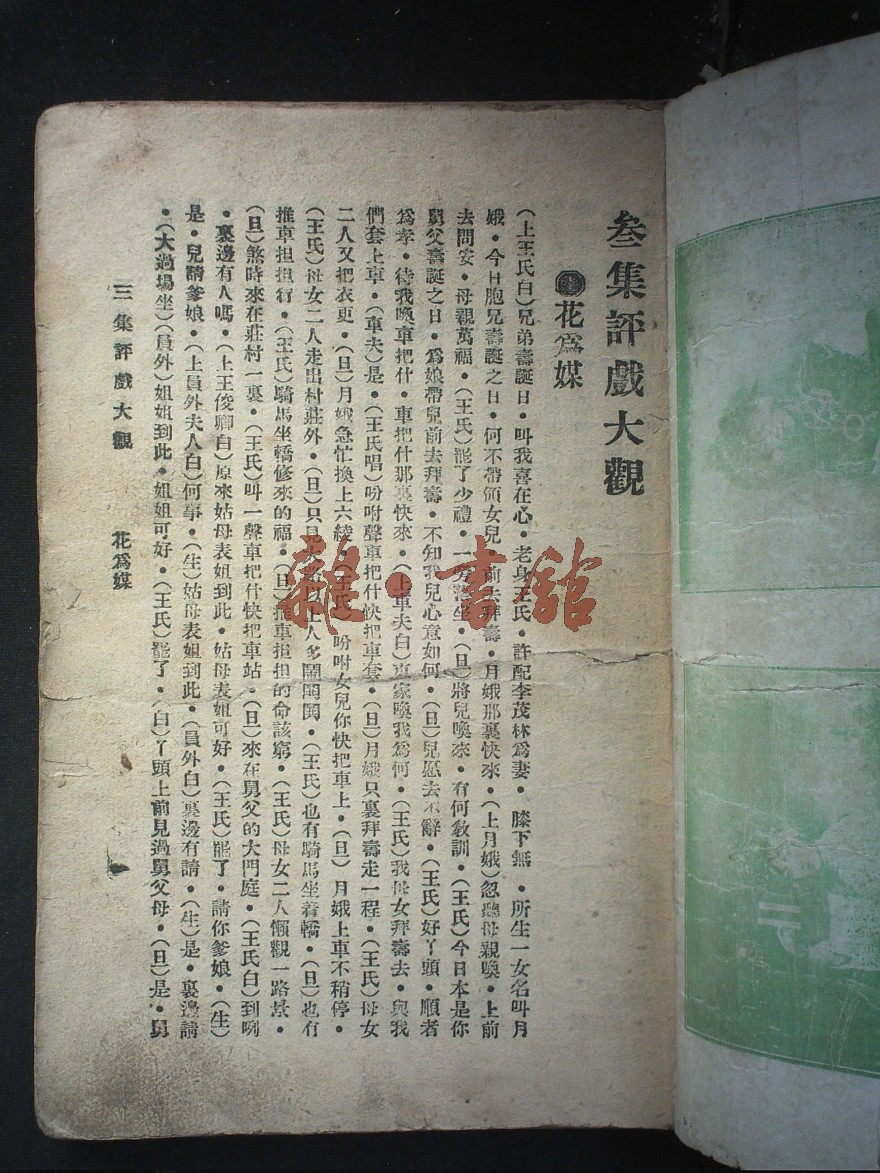 叁集評戲大觀
花爲媒
(上王氏白)兄弟壽誕日•叫我喜在心•老身王氏•許配李茂林爲妻•膝下無•所生一女名叫月
娥•今日胞兄壽誕之日•何不帶領女兒•前去拜壽•月娥那裏快來•(上月娥)忽聽母親喚•上前
去問安•母親萬福•(王氏)罷了少禮•一旁坐•(旦)將兒喚來•有何敎訓•(王氏)今日本是你
舅父壽誕之日•爲娘帶兒前去拜壽•不知我兒心意如何•(旦)兒愿去不辭•(王氏)好丫頭•順者
爲孝•待我喚車把什•車把什那裏快來•(上車夫白)東家喚我爲何•(王氏)我母女拜壽去•與我
們套上車•(車夫)是•(王氏唱)吩咐聲車把什快把車套•(旦)月娥只裏拜壽走一程•(王氏)母女
二人又把衣更•(旦)月娥急忙換上六綾•(王氏)吩咐女兒你快把車上•(旦)月娥上車不稍停•
(王氏)母女二人走出村莊外•(旦)只見大路以上人多鬧閧閧•(王氏)也有騎馬坐着轎•(旦)也有
推車担担行•(王氏)騎馬坐轎修來的福•(旦)推車担担的命該窮•(王氏)母女二人懶觀一路景•
(旦)煞時來在莊村一裏•(王氏)叫一聲車把什快把車站•(旦)來在舅父的大門庭•(王氏白)到咧
•裏邊有人嗎•(上王俊卿白)原來姑母表姐到此•姑母表姐可好•(王氏)罷了•請你爹娘•(生)
是•兒請爹娘•(上員外夫人白)何事•(生)姑母表姐到此•(員外白)裏邊有請•(生)是•裏邊請
•(大過場坐)(員外)姐姐到此•姐姐可好•(王氏)罷了•(白)丫頭上前見過舅父母•(旦)是•舅
三集評戲大觀 花爲媒
雜•書館